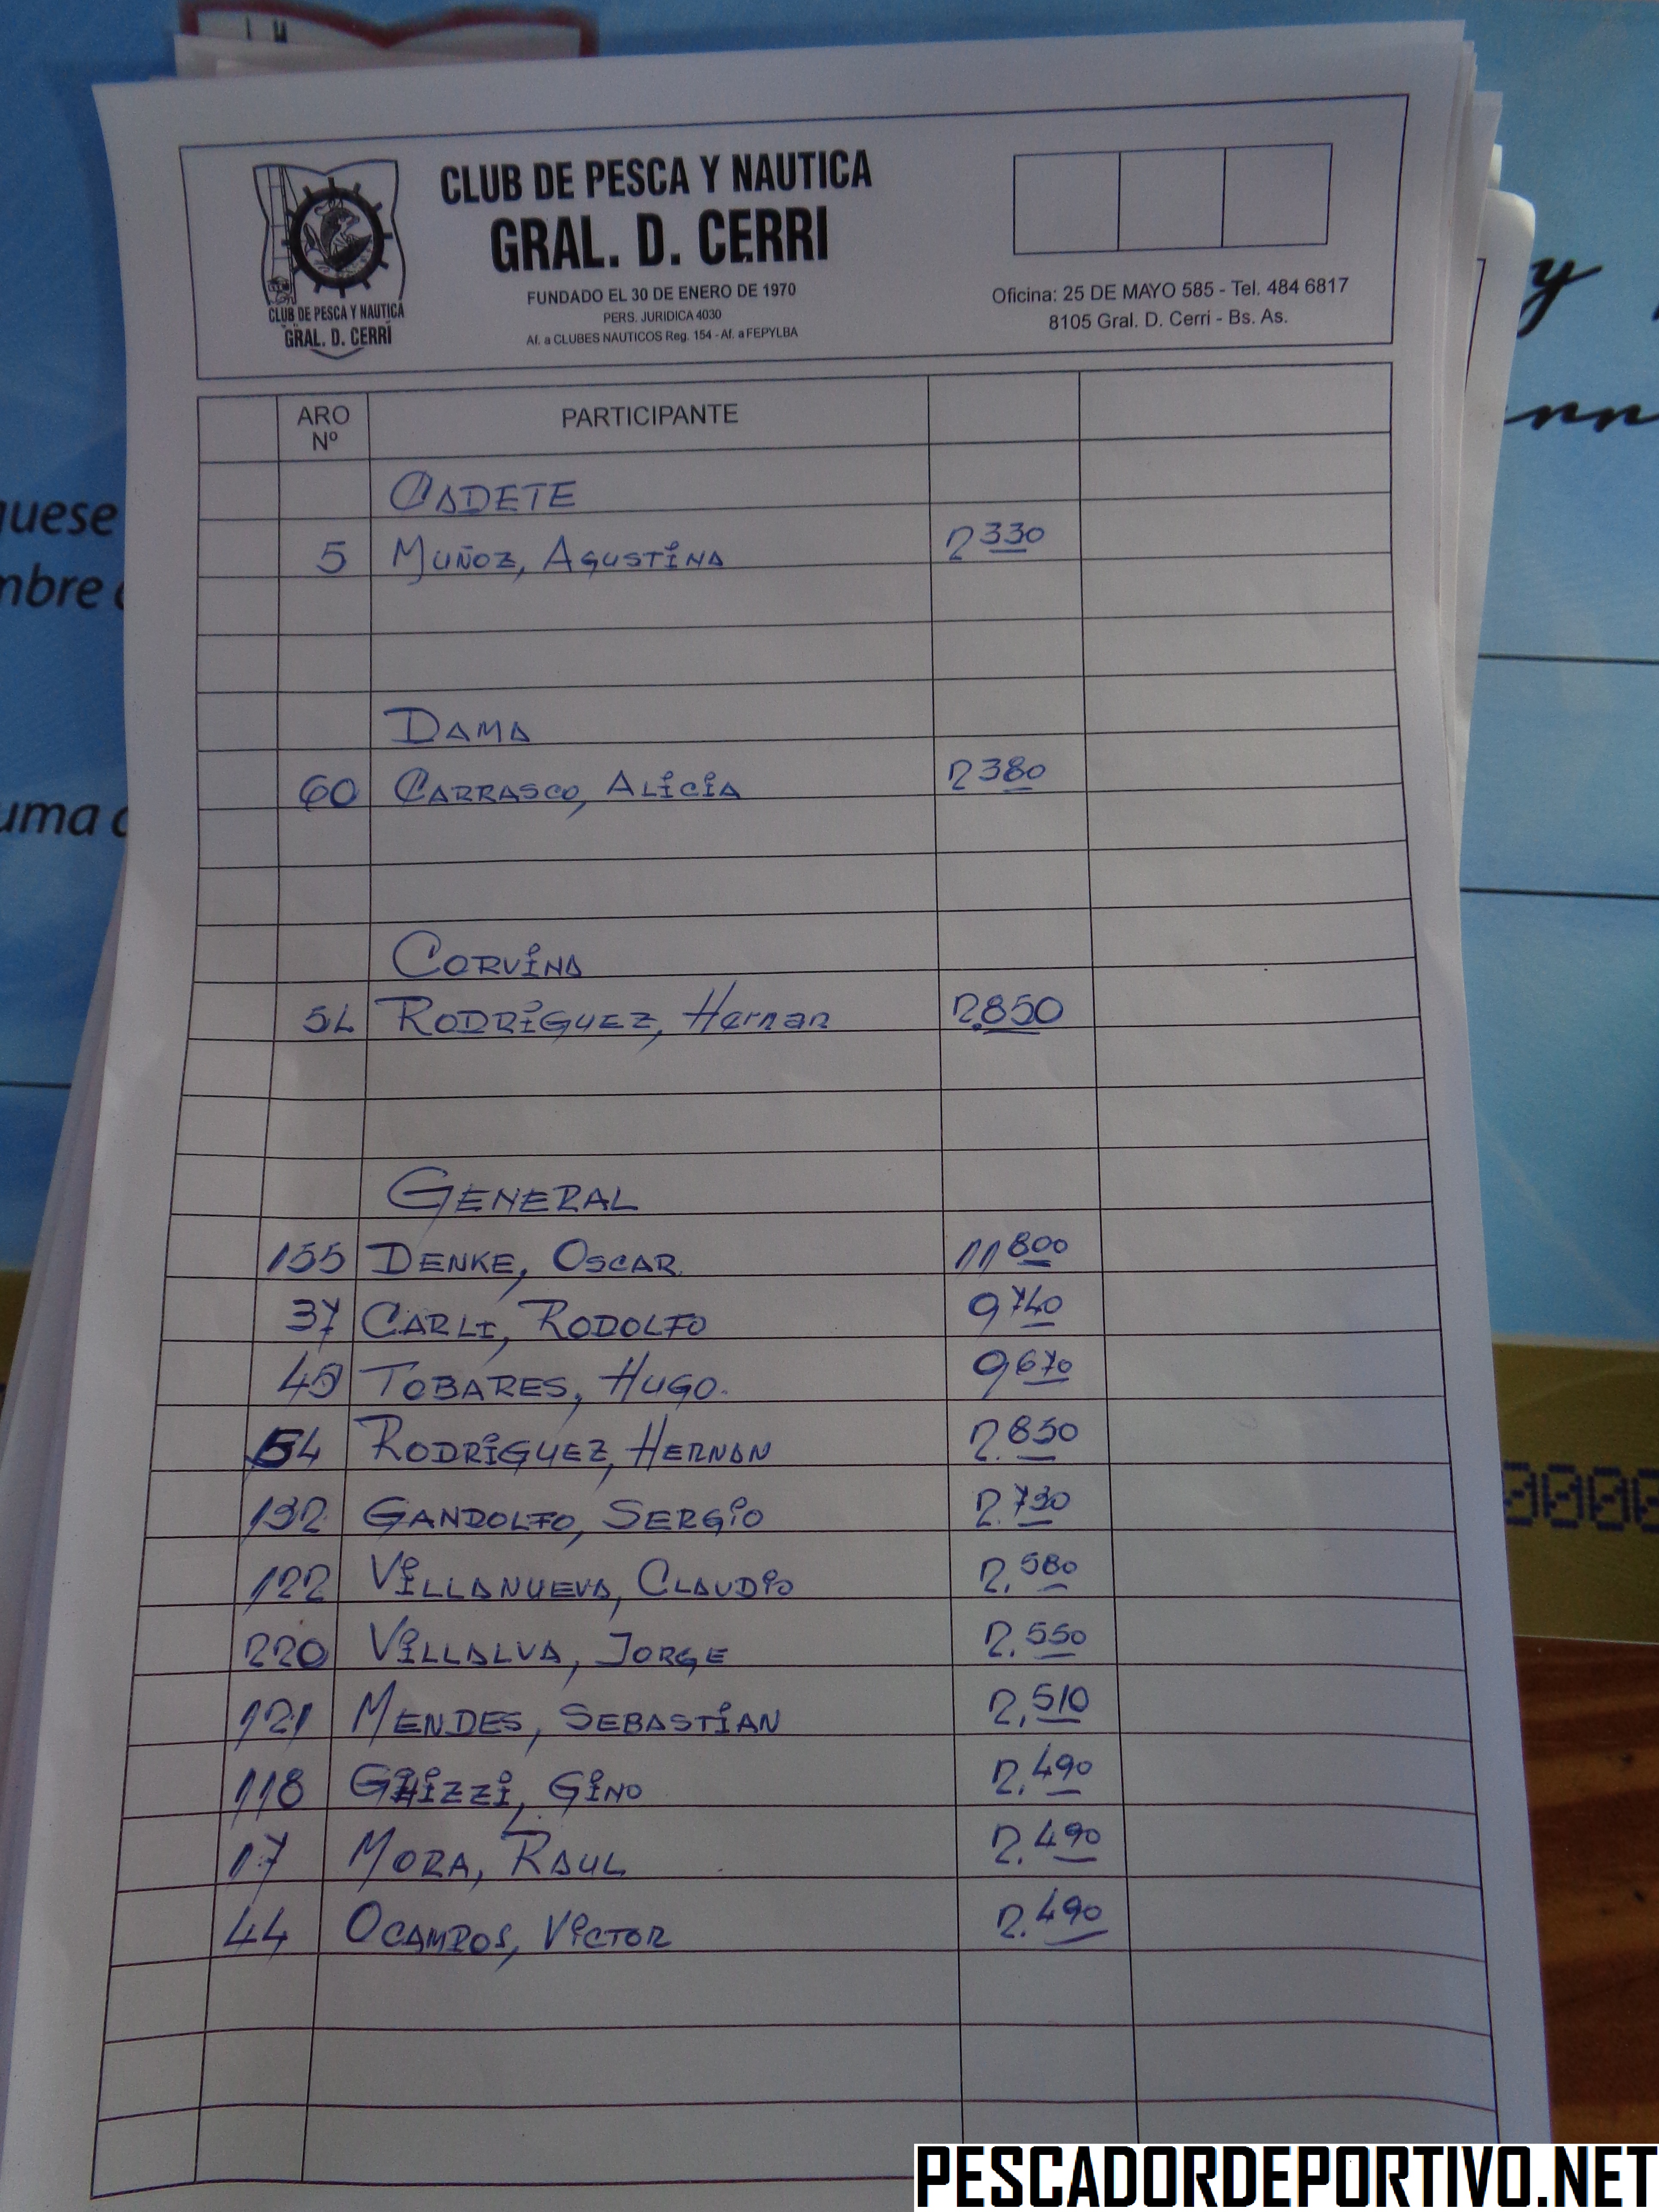 CLUB DE PESCA Y NAUTICA
GRAL. D. CERRI
FUNDADO EL 30 DE ENERO DE 1970
PERS. JURIDICA 4030
Af. a CLUBES NAUTICOS Reg. 154 - Af. a FEPYLBA
CLUB DE PESCA Y NAUTICA
GRAL. D. CERRI
Oficina: 25 DE MAYO 585 - Tel. 484 6817
8105 Gral. D. Cerri - Bs. As.
ARO Nº PARTICIPANTE
CADETE
5 MUÑOZ, AGUSTINA 2330
DAMA
60 CARRASCO, ALICIA 2380
CORVINA
54 RODRIGUEZ, Hernan 2.850
GENERAL
155 DENKE, OSCAR 11800
37 CARLI, RODOLFO 9740
49 TOBARES, HUGO. 9670
54 RODRIGUEZ, HERNAN 2.850
192 GANDOLFO, SERGIO 2.790
122 VILLANUEVA, CLAUDIO 2.580
220 VILLALVA, JORGE 2.550
121 MENDES, SEBASTIAN 2.510
118 GHIZZI, GINO 2.490
17 MORA, RAUL 2.490
44 OCAMPOS, VICTOR 2.490
PESCADORDEPORTIVO.NET